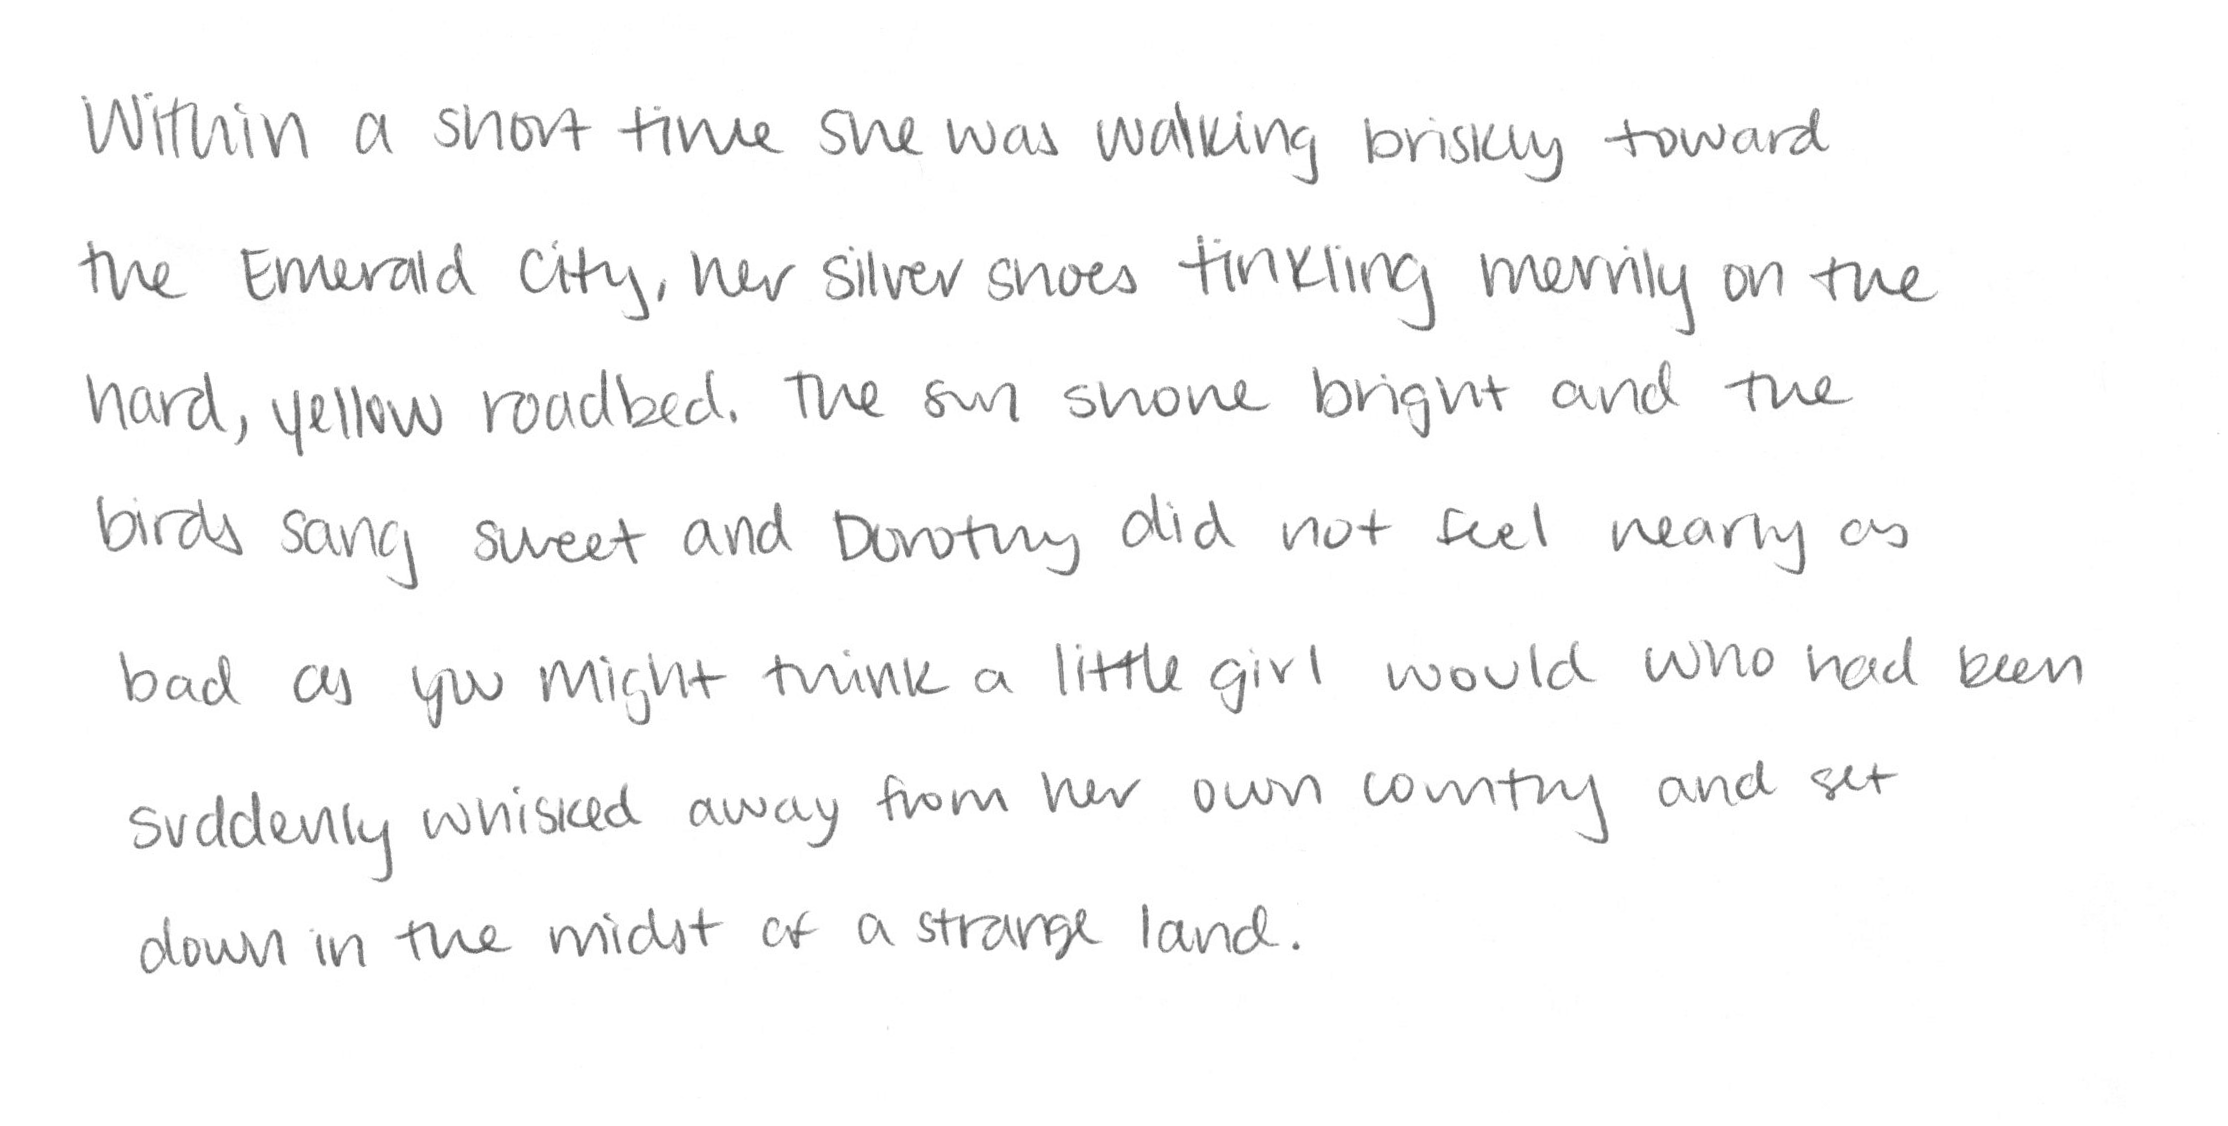 Within a short time she was walking briskly toward
the Emerald City, her silver shoes tinkling merrily on the
hard, yellow roadbed. The sun shone bright and the
birds sang sweet and Dorothy did not feel nearly as
bad as you might think a little girl would who had been
suddenly whisked away from her own country and set
down in the midst of a strange land.